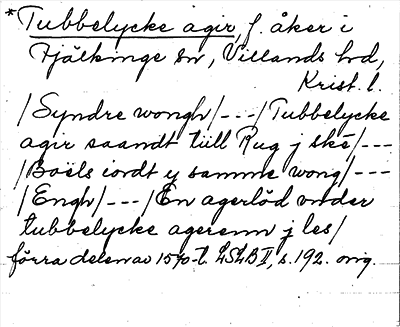 *Tubbelycke agir, f. åker i
Fjälkinge sn, Villands hd,
Krist. l.
/Syndre wongh/---/Tubbelycke
agir saandt tiill Rug j ské/---
/Boëls iordt y samme wong/---
/Engh/---/En agerlöd vnder
tubbelycke agerenn j les/
förra delen av 1570-t. LSLB II, s. 192. orig.